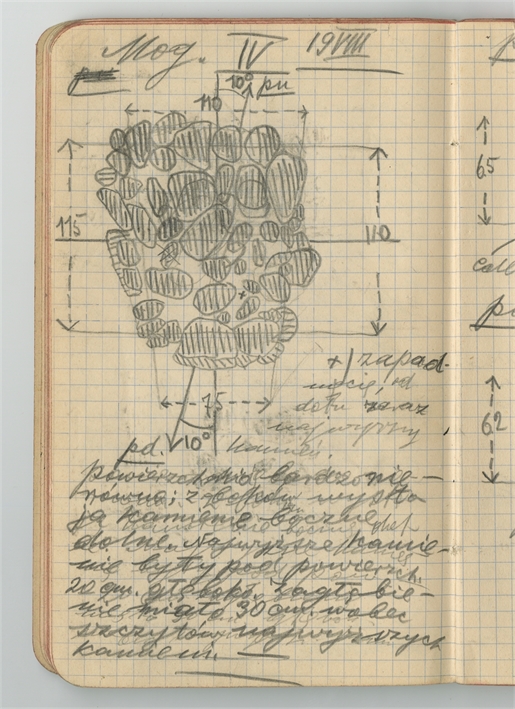 Mog. IV 19 VIII
10° pn
110
115
110
65
+) zapad-
nięcie, od
dołu zaraz
najwyższy
kamień.
75
pd. 10°
powierzchnia bardzo nie-
równa; z boków wysta
ją kamienie boczne,
dolne. Najwyższe kamie-
nie były pod powierzch.
20 cm. głęboko. Zagłębie-
nie miało 30 cm. wobec
szczytów najwyższych
kamieni. —
62